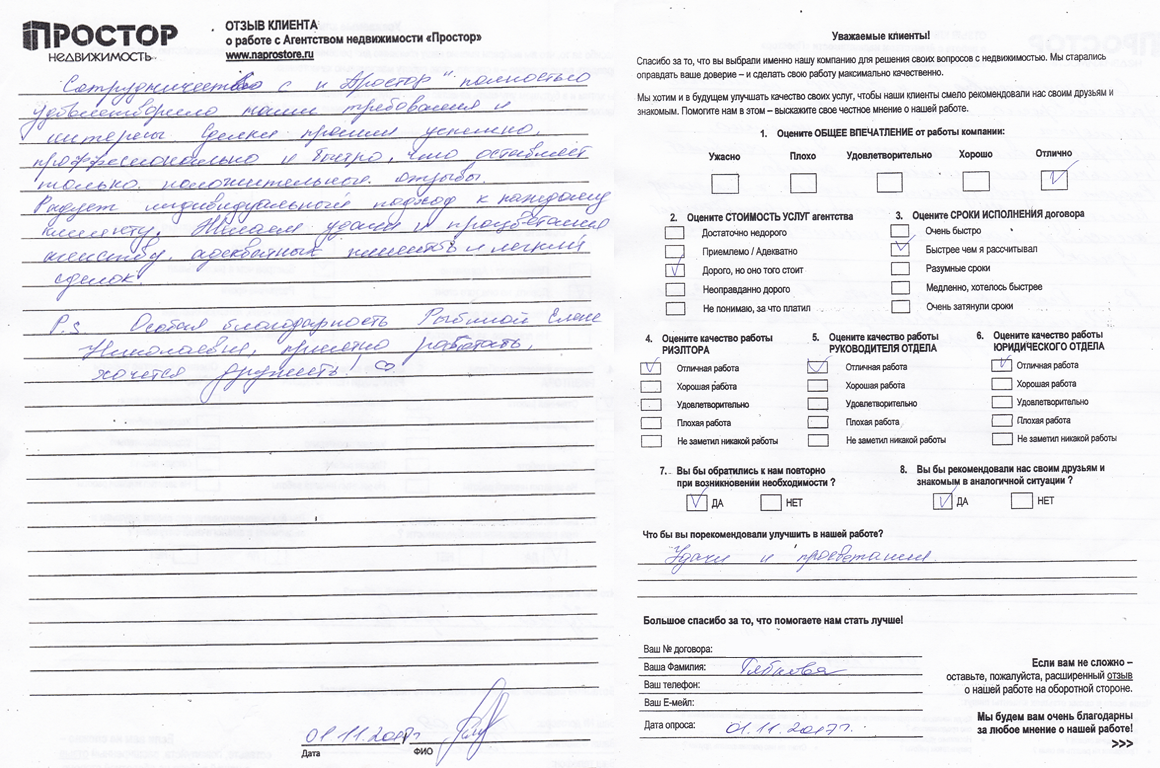 ПРОСТОР
НЕДВИЖИМОСТЬ
ОТЗЫВ КЛИЕНТА
о работе с Агентством недвижимости «Простор»
www.naprostore.ru
Сотрудничество с н "Простор" полностью
удовлетворило наши требования и
интересы. Сделки прошли успешно,
профессионально и быстро, что оставляет
только положительные отзывы.
Радует индивидуальный подход к каждому
клиенту. Желаем удачи и процветания
агенству, адекватных клиентов и легких
сделок.
P.s. Особая благодарность Рыбиной Елене
Николаевне, приятно работать,
хочется дружить!
01.11.2017г.
Дата
ФИО
Уважаемые клиенты!
Спасибо за то, что вы выбрали именно нашу компанию для решения своих вопросов с недвижимостью. Мы старались
оправдать ваше доверие – и сделать свою работу максимально качественно.
Мы хотим и в будущем улучшать качество своих услуг, чтобы наши клиенты смело рекомендовали нас своим друзьям и
знакомым. Помогите нам в этом – выскажите свое честное мнение о нашей работе.
1. Оцените ОБЩЕЕ ВПЕЧАТЛЕНИЕ от работы компании:
Ужасно Плохо Удовлетворительно Хорошо Отлично
2. Оцените СТОИМОСТЬ УСЛУГ агентства
Достаточно недорого
Приемлемо / Адекватно
Дорого, но оно того стоит
Неоправданно дорого
Не понимаю, за что платил
3. Оцените СРОКИ ИСПОЛНЕНИЯ договора
Очень быстро
Быстрее чем я рассчитывал
Разумные сроки
Медленно, хотелось быстрее
Очень затянули сроки
4. Оцените качество работы
РИЭЛТОРА
Отличная работа
Хорошая работа
Удовлетворительно
Плохая работа
Не заметил никакой работы
5. Оцените качество работы
РУКОВОДИТЕЛЯ ОТДЕЛА
Отличная работа
Хорошая работа
Удовлетворительно
Плохая работа
Не заметил никакой работы
6. Оцените качество работы
ЮРИДИЧЕСКОГО ОТДЕЛА
Отличная работа
Хорошая работа
Удовлетворительно
Плохая работа
Не заметил никакой работы
7. Вы бы обратились к нам повторно
при возникновении необходимости ?
ДА НЕТ
8. Вы бы рекомендовали нас своим друзьям и
знакомым в аналогичной ситуации ?
ДА НЕТ
Что бы вы порекомендовали улучшить в нашей работе?
Удачи и просветания.
Большое спасибо за то, что помогаете нам стать лучше!
Ваш № договора:
Ваша Фамилия:
Ваш телефон:
Ваш Е-мейл:
Дата опроса: 01.11.2017г.
Если вам не сложно –
оставьте, пожалуйста, расширенный отзыв
о нашей работе на оборотной стороне.
Мы будем вам очень благодарны
за любое мнение о нашей работе!
>>>